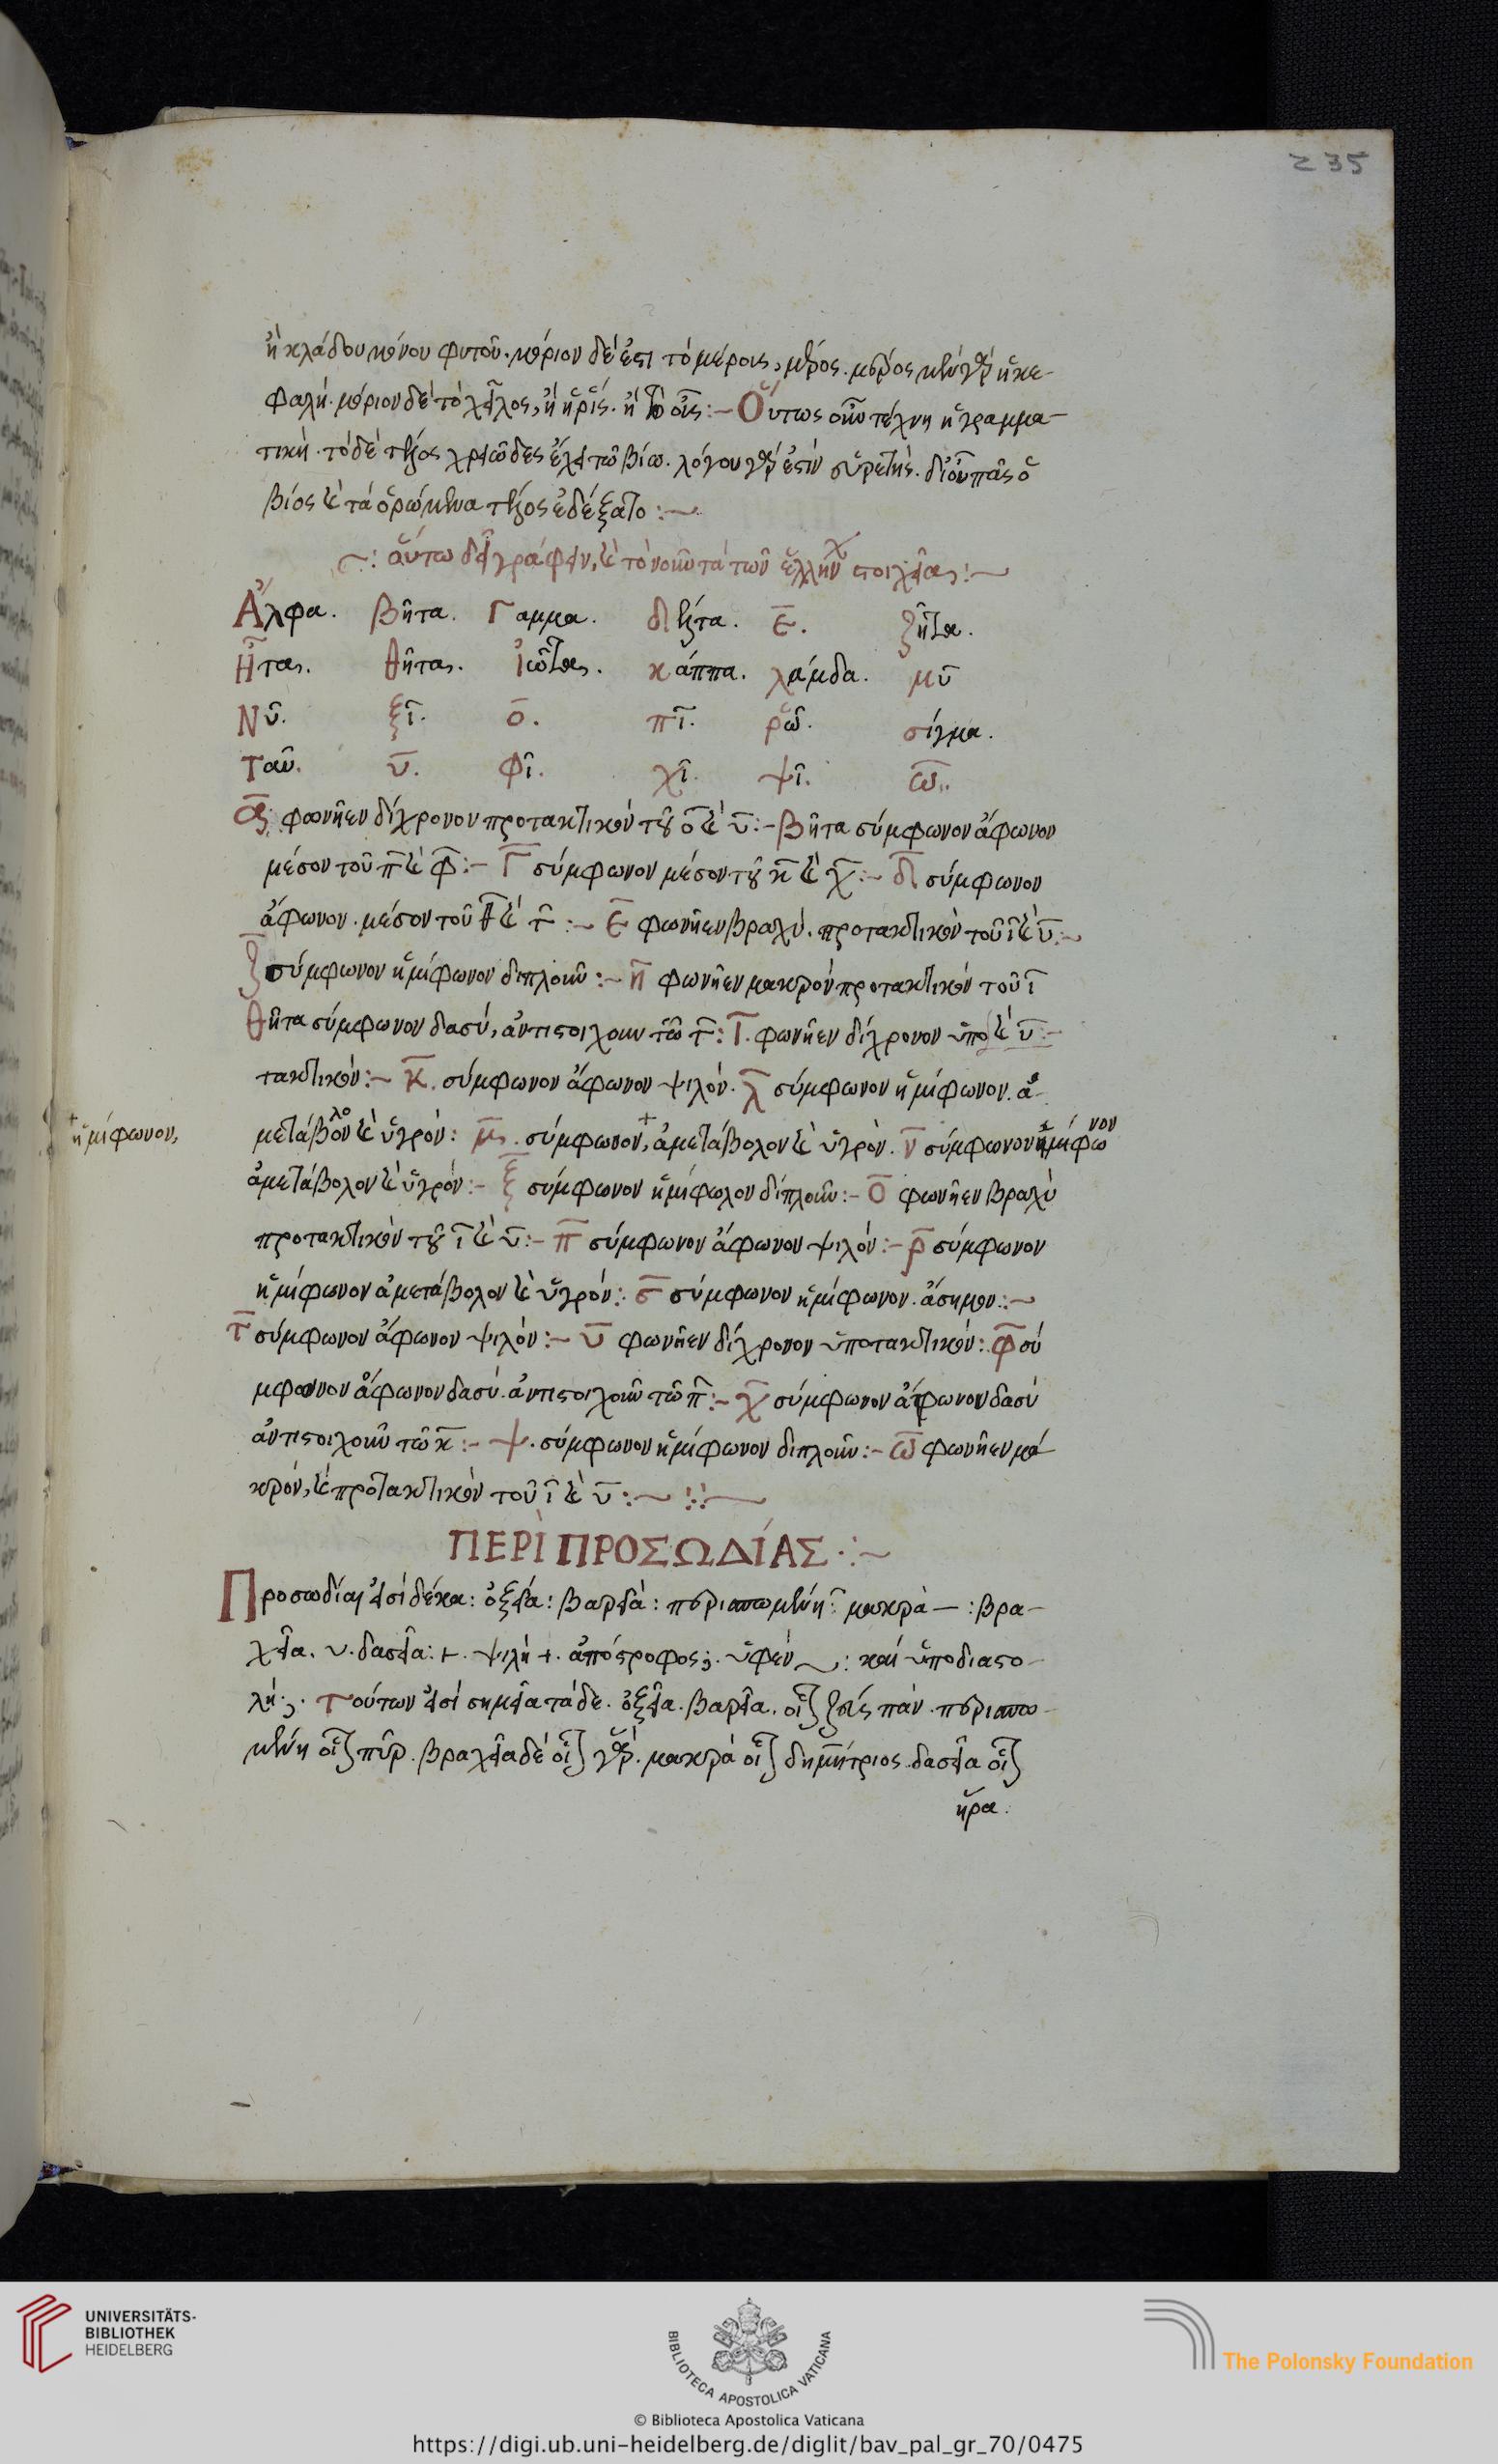 235
ἢ κλάδου μόνου φυτοῦ. μόριον δέ ἐστι τὸ μέρους, μέρος. μέρος μὲν γὰρ ἡ κε-
φαλή. μόριον δὲ τὸ χεῖλος, ἢ ἡ ῥίς. ἢ τὸ οὖς :- Οὕτως οὖν τέχνη ἡ γραμμα-
τική. τὸ δὲ τέλος χρειῶδες ἔχει τῷ βίῳ. λόγου γάρ ἐστιν εὑρετής. δι' οὗ πᾶς ὁ
βίος καὶ τὰ δρώμενα τέλος ἐδέξατο :~
~: οὕτω δεῖ γράφειν, καὶ τῶν ἑλλήνων στοιχεῖα :~
Ἄλφα. Βῆτα. Γαμμα. δέλτα. ε̅. ζῆτα.
Ἦτα. θῆτα. ἰῶτα. κάππα. λάμδα. μῦ
Νῦ. ξῖ. ο̅. πῖ. ῥῶ. σίγμα.
Ταῦ. υ̅. φῖ. χῖ. ψῖ. ω̅.
α̅ φωνῆεν δίχρονον προτακτικὸν τοῦ ι̅ καὶ υ̅ :- Βῆτα σύμφωνον ἄφωνον
μέσον τοῦ π̅ καὶ φ̅ :- Γ̅ σύμφωνον μέσον τοῦ κ̅ καὶ χ̅ :~ δ̅ σύμφωνον
ἄφωνον. μέσον τοῦ θ̅ καὶ τ̅ :~ ε̅ φωνῆεν βραχύ. προτακτικὸν τοῦ ι̅ καὶ υ̅ :~
ζ̅ σύμφωνον ἡμίφωνον διπλοῦν :~ η̅ φωνῆεν μακρὸν προτακτικὸν τοῦ ι̅
θῆτα σύμφωνον δασύ, ἀντιστοιχοῦν τῷ τ̅ : ι̅. φωνῆεν δίχρονον ὑπο καὶ υ̅ :-
τακτικόν :~ κ̅. σύμφωνον ἄφωνον ψιλόν. λ̅ σύμφωνον ἡμίφωνον. ἀ-
μετάβολον καὶ ὑγρόν : μ̅. σύμφωνον, + ἀμετάβολον καὶ ὑγρόν. ν̅ σύμφωνον ἡμίφωνον
+ ἡμίφωνον,
ἀμετάβολον καὶ ὑγρόν :- ξ̅ σύμφωνον ἡμίφωλον διπλοῦν :- ο̅ φωνῆεν βραχὺ
προτακτικὸν τοῦ ι̅ καὶ υ̅ :- π̅ σύμφωνον ἄφωνον ψιλόν :- ρ̅ σύμφωνον
ἡμίφωνον ἀμετάβολον καὶ ὑγρόν :. σ̅ σύμφωνον ἡμίφωνον. ἄσημον :~
τ̅ σύμφωνον ἄφωνον ψιλόν :~ υ̅ φωνῆεν δίχρονον ὑποτακτικόν : φ̅ σύ
μφωνον ἄφωνον δασύ. ἀντιστοιχοῦν τῷ π̅ :~ χ̅ σύμφωνον ἄφωνον δασύ
ἀντιστοιχοῦν τῷ κ̅ :- ψ. σύμφωνον ἡμίφωνον διπλοῦν :- ω̅ φωνῆεν μα
κρόν, καὶ προτακτικὸν τοῦ ι̅ καὶ υ̅ :~
ΠΕΡῚ ΠΡΟΣΩΔΊΑΣ :~
Προσωδίαι εἰσὶ δέκα : ὀξεῖα : βαρεῖα : περισπωμένη ῀: μακρὰ — : βρα-
χεῖα. υ. δασεῖα : ├. ψιλὴ ┤. ἀπόστροφος ;. ὑφὲν ‿ : καὶ ὑποδιαστο-
λή. ,. τούτων εἰσὶ σημεῖα τάδε. ὀξεῖα. βαρεῖα. οἷον ζεὺς πάν. περισπω
μένη οἷον πῦρ. βραχεῖα δὲ οἷον γάρ. μακρὰ οἷον δημήτριος. δασεῖα οἷον
ἥρα.
UNIVERSITÄTS-
BIBLIOTHEK
HEIDELBERG
BIBLIOTECA APOSTOLICA VATICANA
The Polonsky Foundation
© Biblioteca Apostolica Vaticana
https://digi.ub.uni-heidelberg.de/diglit/bav_pal_gr_70/0475